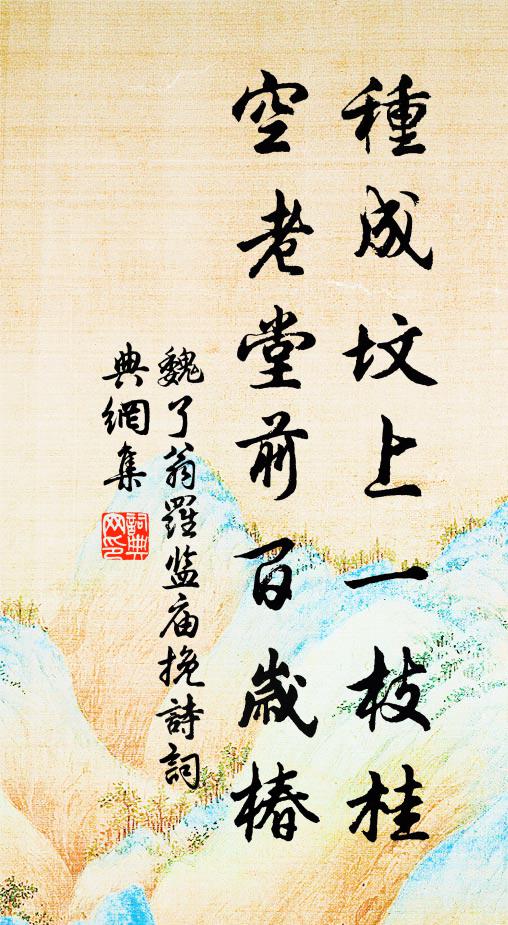 種成坟上一枝桂
空老堂前百歲椿
魏了翁羅监庙挽詩詞
典網集
詞典
网印